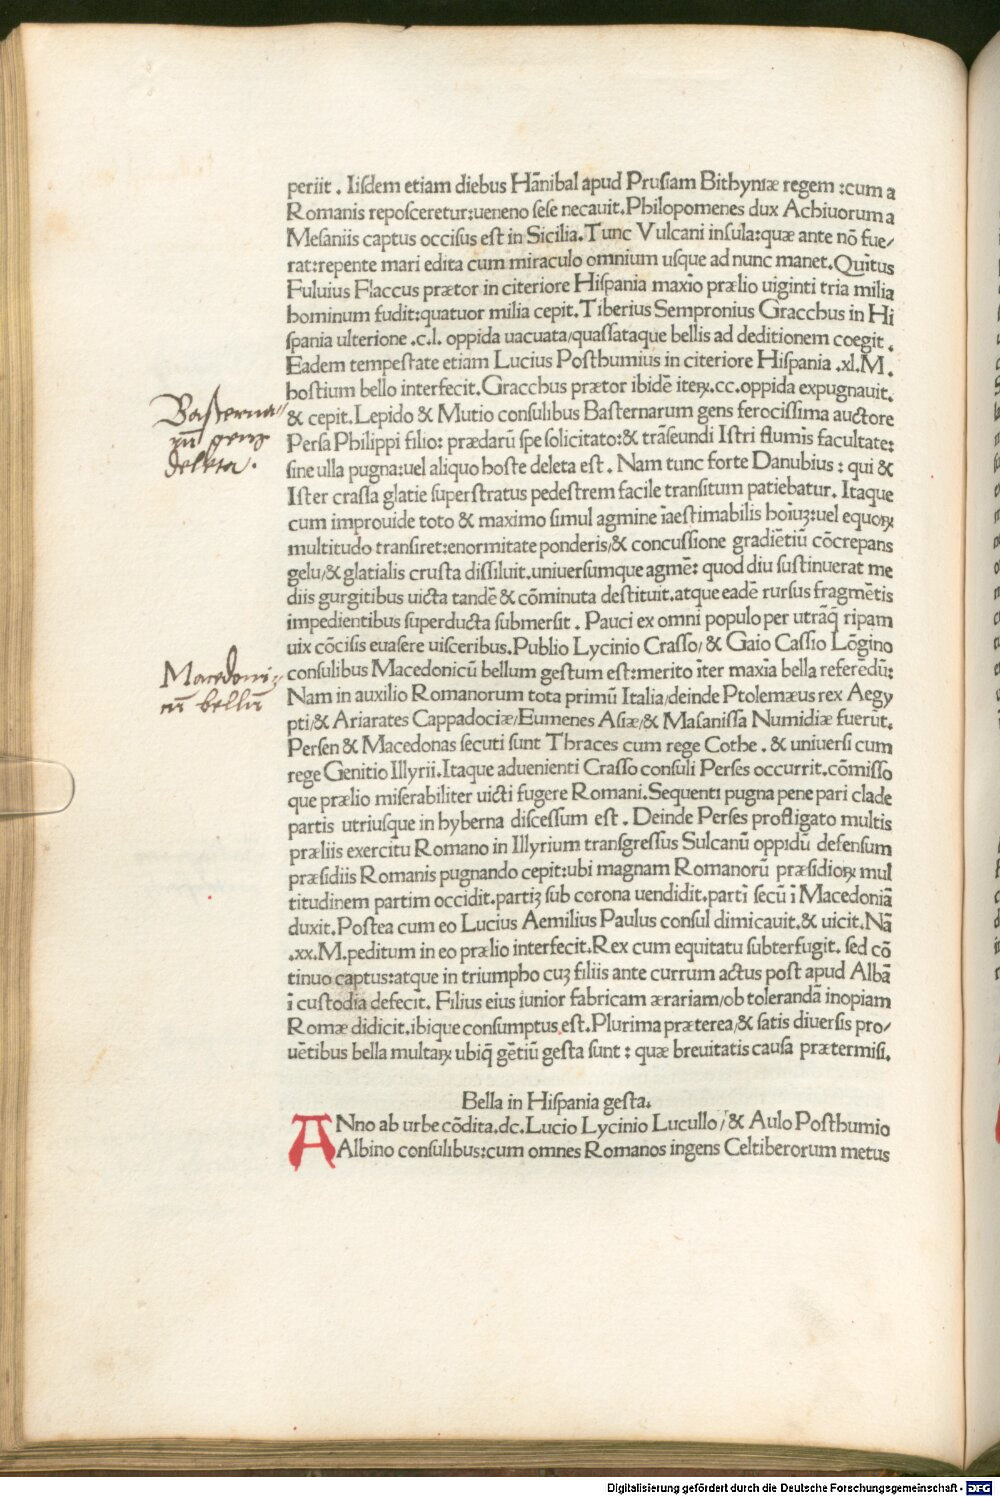 periit . Iiſdem etiam diebus Hãnibal apud Pruſiam Bithyniæ regem :cum a
Romanis repoſceretur:ueneno ſeſe necauit.Philopomenes dux Achiuorum a
Meſaniis captus occiſus eſt in Sicilia.Tunc Vulcani inſula:quæ ante nõ fue/
rat:repente mari edita cum miraculo omnium uſque ad nunc manet.Quĩtus
Fuluius Flaccus prætor in citeriore Hiſpania maxĩo prælio uiginti tria milia
hominum fudit:quatuor milia cepit.Tiberius Sempronius Gracchus in Hi
ſpania ulteriore .c.l. oppida uacuata/quaſſataque bellis ad deditionem coegit .
Eadem tempeſtate etiam Lucius Poſthumius in citeriore Hiſpania .xl.M .
hoſtium bello interfecit.Gracchus prætor ibidẽ iteꝝ.cc.oppida expugnauit.
& cepit.Lepido & Mutio conſulibus Baſternarum gens ferociſſima auctore
Perſa Philippi filio: prædarũ ſpe ſolicitato:& trãſeundi Iſtri flumĩs facultate:
ſine ulla pugna:uel aliquo hoſte deleta eſt . Nam tunc forte Danubius : qui &
Iſter craſſa glatie ſuperſtratus pedeſtrem facile tranſitum patiebatur. Itaque
cum improuide toto & maximo ſimul agmine ĩaeſtimabilis hoĩuꝫ:uel equoꝝ
multitudo tranſiret:enormitate ponderis/& concuſſione gradiẽtiũ cõcrepans
gelu/& glatialis cruſta diſſiluit.uniuerſumque agmẽ: quod diu ſuſtinuerat me
diis gurgitibus uicta tandẽ & cõminuta deſtituit.atque eadẽ rurſus fragmẽtis
impedientibus ſuperducta ſubmerſit . Pauci ex omni populo per utrãq̃ ripam
uix cõciſis euaſere uiſceribus.Publio Lycinio Craſſo/ & Gaio Caſſio Lõgino
conſulibus Macedonicũ bellum geſtum eſt:merito ĩter maxĩa bella referẽdũ:
Nam in auxilio Romanorum tota primũ Italia/deinde Ptolemæus rex Aegy
pti/& Ariarates Cappadociæ/Eumenes Aſiæ/& Maſaniſſa Numidiæ fuerũt.
Perſen & Macedonas ſecuti ſunt Thraces cum rege Cothe . & uniuerſi cum
rege Genitio Illyrii.Itaque aduenienti Craſſo conſuli Perſes occurrit.cõmiſſo
que prælio miſerabiliter uicti fugere Romani.Sequenti pugna pene pari clade
partis utriuſque in hyberna diſceſſum eſt . Deinde Perſes profligato multis
præliis exercitu Romano in Illyrium tranſgreſſus Sulcanũ oppidũ defenſum
præſidiis Romanis pugnando cepit:ubi magnam Romanorũ præſidioꝝ mul
titudinem partim occidit.partiꝫ ſub corona uendidit.partĩ ſecũ ĩ Macedoniã
duxit.Poſtea cum eo Lucius Aemilius Paulus conſul dimicauit.& uicit. Nã
.xx.M.peditum in eo prælio interfecit.Rex cum equitatu ſubterfugit. ſed cõ
tinuo captus:atque in triumpho cuꝫ filiis ante currum actus poſt apud Albã
ĩ cuſtodia defecit. Filius eius iunior fabricam ærariam/ob tolerandã inopiam
Romæ didicit.ibique conſumptus eſt.Plurima præterea/& ſatis diuerſis pro/
uẽtibus bella multaꝝ ubiq̃ gẽtiũ geſta ſunt : quæ breuitatis cauſa prætermiſi.
Baſterna//
rũ genꝫ
deleta.
Macedoni=
cũ bellũ
Bella in Hiſpania geſta.
ANno ab urbe cõdita.dc.Lucio Lycinio Lucullo/& Aulo Poſthumio
Albino conſulibus:cum omnes Romanos ingens Celtiberorum metus
Digitalisierung gefördert durch die Deutsche Forschungsgemeinschaft - DFG